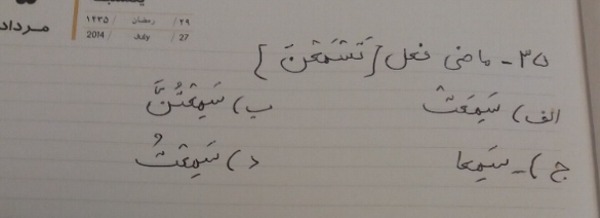 مرداد
۲۹ / رمضان / ۱۴۳۵
2014 / July / 27
۳۵- ماضی فعل [تَسْمَعْنَ]
الف) سَمِعَتْ ب) سَمِعْتُنَّ
ج) سَمِعا د) سَمِعْتُ